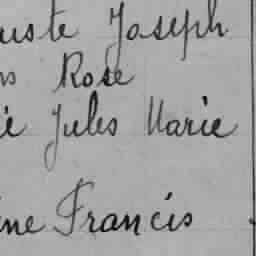 uste Joseph
ns Rose
ie Jules Marie
ine Francis